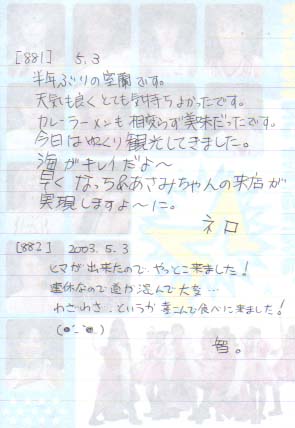 [881] 5.3
半年ぶりの室蘭です。
天気も良くとても気持ちよかったです。
カレーラーメンも相変らず美味だったです。
今日はゆっくり観光してきました。
海がキレイだよ〜
早く なっち&あさみちゃんの来店が
実現しますよ〜に。
ネロ
[882] 2003.5.3
ヒマが出来たので‥やっとこ来ました!
連休なので道が混んで大変…
わざわざ‥というか喜こんで食べに来ました!
智。